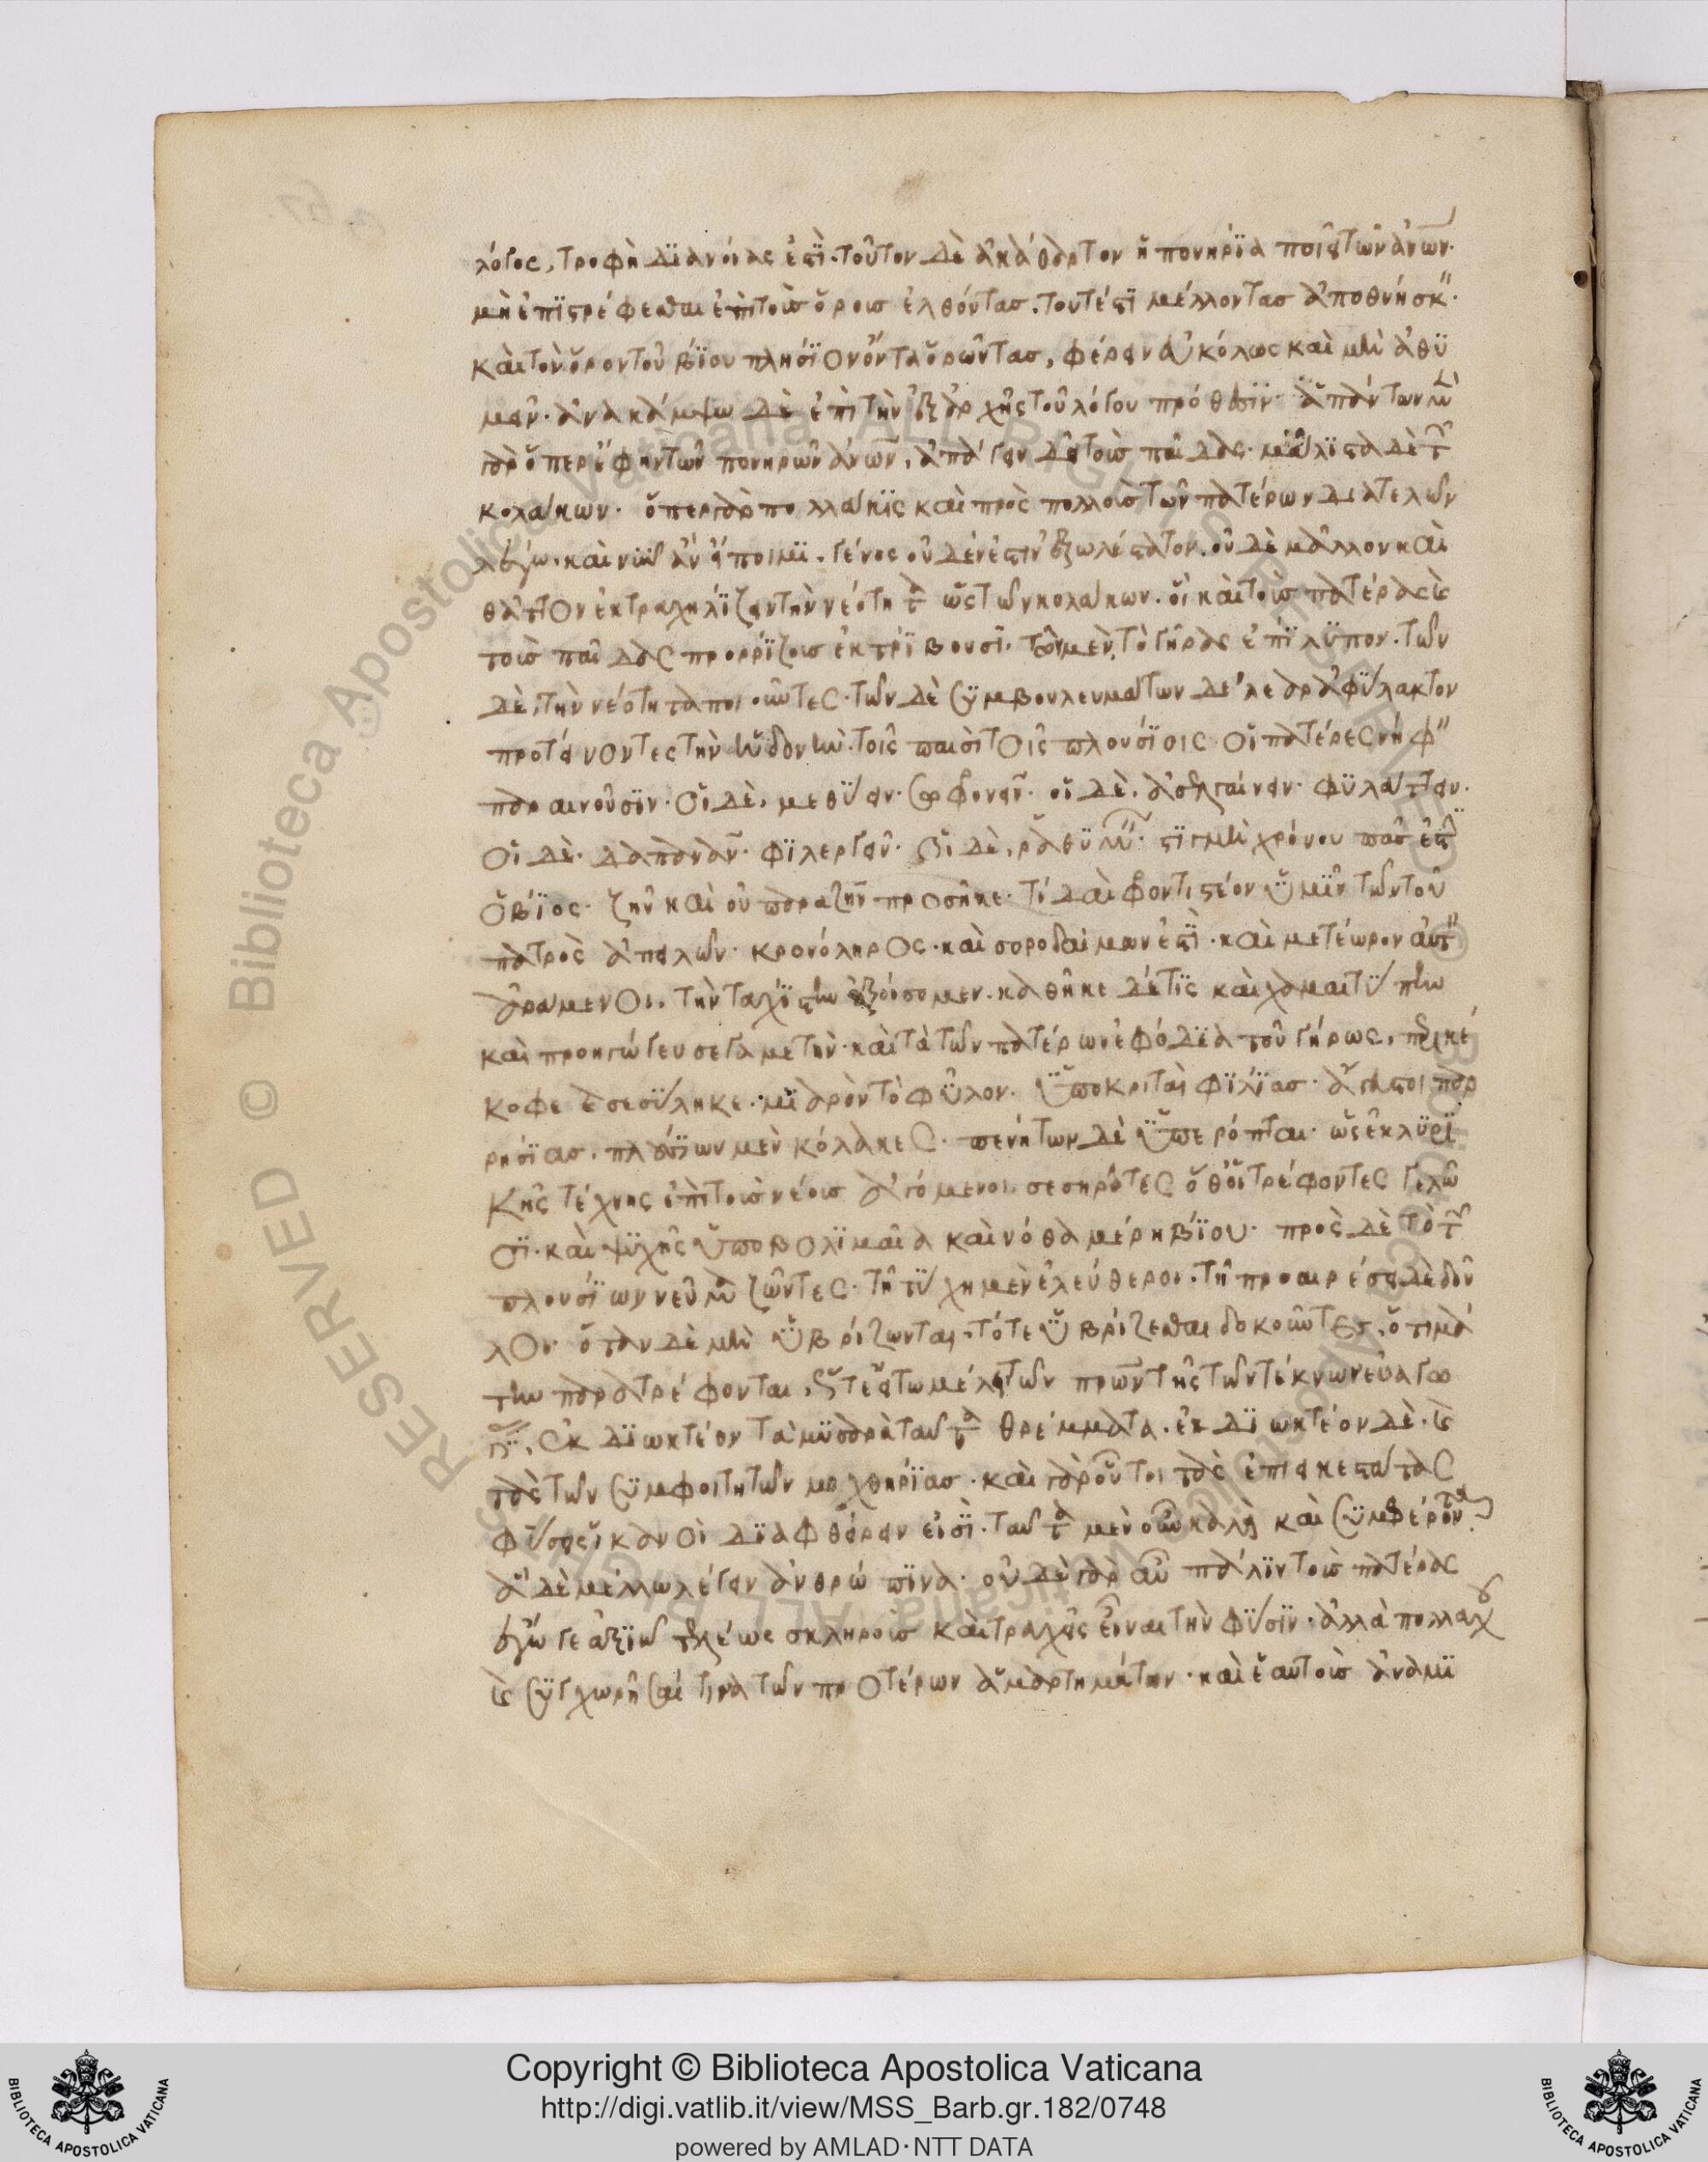 λόγος, τροφὴ διανοίας ἐστὶ. τοῦτον δὲ ἀκάθαρτον ἡ πονηρία ποιεῖ τῶν ἀνων.
μὴ ἐπιστρέφεσθαι ἐπὶ τοὺς ὅρους ἐλθόντας. τουτέστι μέλλοντας ἀποθνήσκ
καὶ τὸν ὅρον τοῦ βίου πλησίον ὄντα ὁρῶντας, φέρειν εὐκόλως καὶ μὴ ἀθυ
μεῖν. ἀνακάμψω δὲ ἐπὶ τὴν ἐξ ἀρχῆς τοῦ λόγου πρόθεσιν. ἁπάντων
γὰρ ὅπερ ἔφην τῶν πονηρῶν ἀνων, ἀπάγειν δεῖ τοὺς παῖδας. μάλιστα δὲ τ
κολάκων. ὅπερ γὰρ πολλάκις καὶ πρὸς πολλοὺς τῶν πατέρων διατελῶν
λέγω. καὶ νῦν ἂν εἴποιμι. γένος οὐδέν ἐστιν ἐξωλέστατον. οὐδὲ μᾶλλον καὶ
θᾶττον ἐκτραχηλίζειν τὴν νεότητα ὡς τῶν κολάκων. οἳ καὶ τοὺς πατέρας εἰς
τοὺς παῖδας προρρίζους ἐκτρίβουσι. τῶν μὲν, τὸ γῆρας ἐπίλυπον. τῶν
δὲ, τὴν νεότητα ποιοῦντες. τῶν δὲ συμβουλευμάτων δέλεαρ ἀφύλακτον
προτείνοντες τὴν ἡδονὴν. τοῖς παισὶ τοῖς πλουσίοις οἱ πατέρες νήφ
παραινοῦσιν. οἱ δὲ, μεθύειν. σωφρονεῖν. οἱ δὲ, ἀσελγαίνειν. φυλάττειν.
οἱ δὲ. δαπανᾶν. φιλεργεῖν. οἱ δὲ, ῥαθυμ. στιγμὴ χρόνου πᾶς ἐστ
ὁ βίος. ζῆν καὶ οὐ παραζῆν προσῆκε. τί δαὶ φροντιστέον ὑμῖν τῶν τοῦ
πατρὸς ἀπειλῶν. κρονόληρος. καὶ σοροδαίμων ἐστὶ. καὶ μετέωρον αὐτ
ἀράμενοι. τὴν ταχίστην ἐξοίσομεν. καθῆκε δέ τις καὶ χαμαιτύπην
καὶ προηγώγευσε γαμετὴν. καὶ τὰ τῶν πατέρων ἐφόδια τοῦ γήρως, περιέ
κοψε ἐσεσύληκε. μιαρὸν τὸ φῦλον. ὑποκριταὶ φιλίας. ἄγευστοι παρ
ρησίας. πλουσίων μὲν κόλακες. πενήτων δὲ ὑπερόπται. ὡς ἐκ λυρι
κῆς τέχνης ἐπὶ τοὺς νέους ἀγόμενοι. σεσηρότες ὅθ' οἱ τρέφοντες γελῶ
σι. καὶ ψυχῆς ὑποβολιμαῖα καὶ νόθα μέρη βίου. πρὸς δὲ τὸ τ
πλουσίων νεῦμα ζῶντες. τῇ τύχῃ μὲν ἐλεύθεροι. τῇ προαιρέσει δὲ δοῦ
λοι. ὅταν δὲ μὴ ὑβρίζωνται, τότε ὑβρίζεσθαι δοκοῦντες, ὅτι μά
την παρατρέφονται, ὥστε εἴ τω μέλει τῶν πρων τῆς τῶν τέκνων εὐαγω
γι, ἐκδιωκτέον τὰ μυσαρὰ ταῦτα θρέμματα. ἐκδιωκτέον δὲ. εἰς
τὰς τῶν συμφοιτητῶν μοχθηρίας. καὶ γὰρ οὗτοι τὰς ἐπιεικεστάτας
φύσεις ἱκανοὶ διαφθείρειν εἰσὶ. ταῦτα μὲν οὖν καλὰ καὶ συμφέροντα
ἃ δὲ μέλλω λέγειν ἀνθρώπινα. οὐδὲ γὰρ αὖ πάλιν τοὺς πατέρας
ἐγώ γε ἀξιῶ τελέως σκληροὺς καὶ τραχεῖς εἶναι τὴν φύσιν. ἀλλὰ πολλαχοῦ
εἰς συγχωρῆσαί τινα τῶν προτέρων ἁμαρτημάτων. καὶ ἑαυτοὺς ἀναμι
RESERVED © Biblioteca Apostolica Vaticana ALL RIGHTS RESERVED
Copyright © Biblioteca Apostolica Vaticana
http://digi.vatlib.it/view/MSS_Barb.gr.182/0748
powered by AMLAD·NTT DATA
BIBLIOTECA APOSTOLICA VATICANA
BIBLIOTECA APOSTOLICA VATICANA